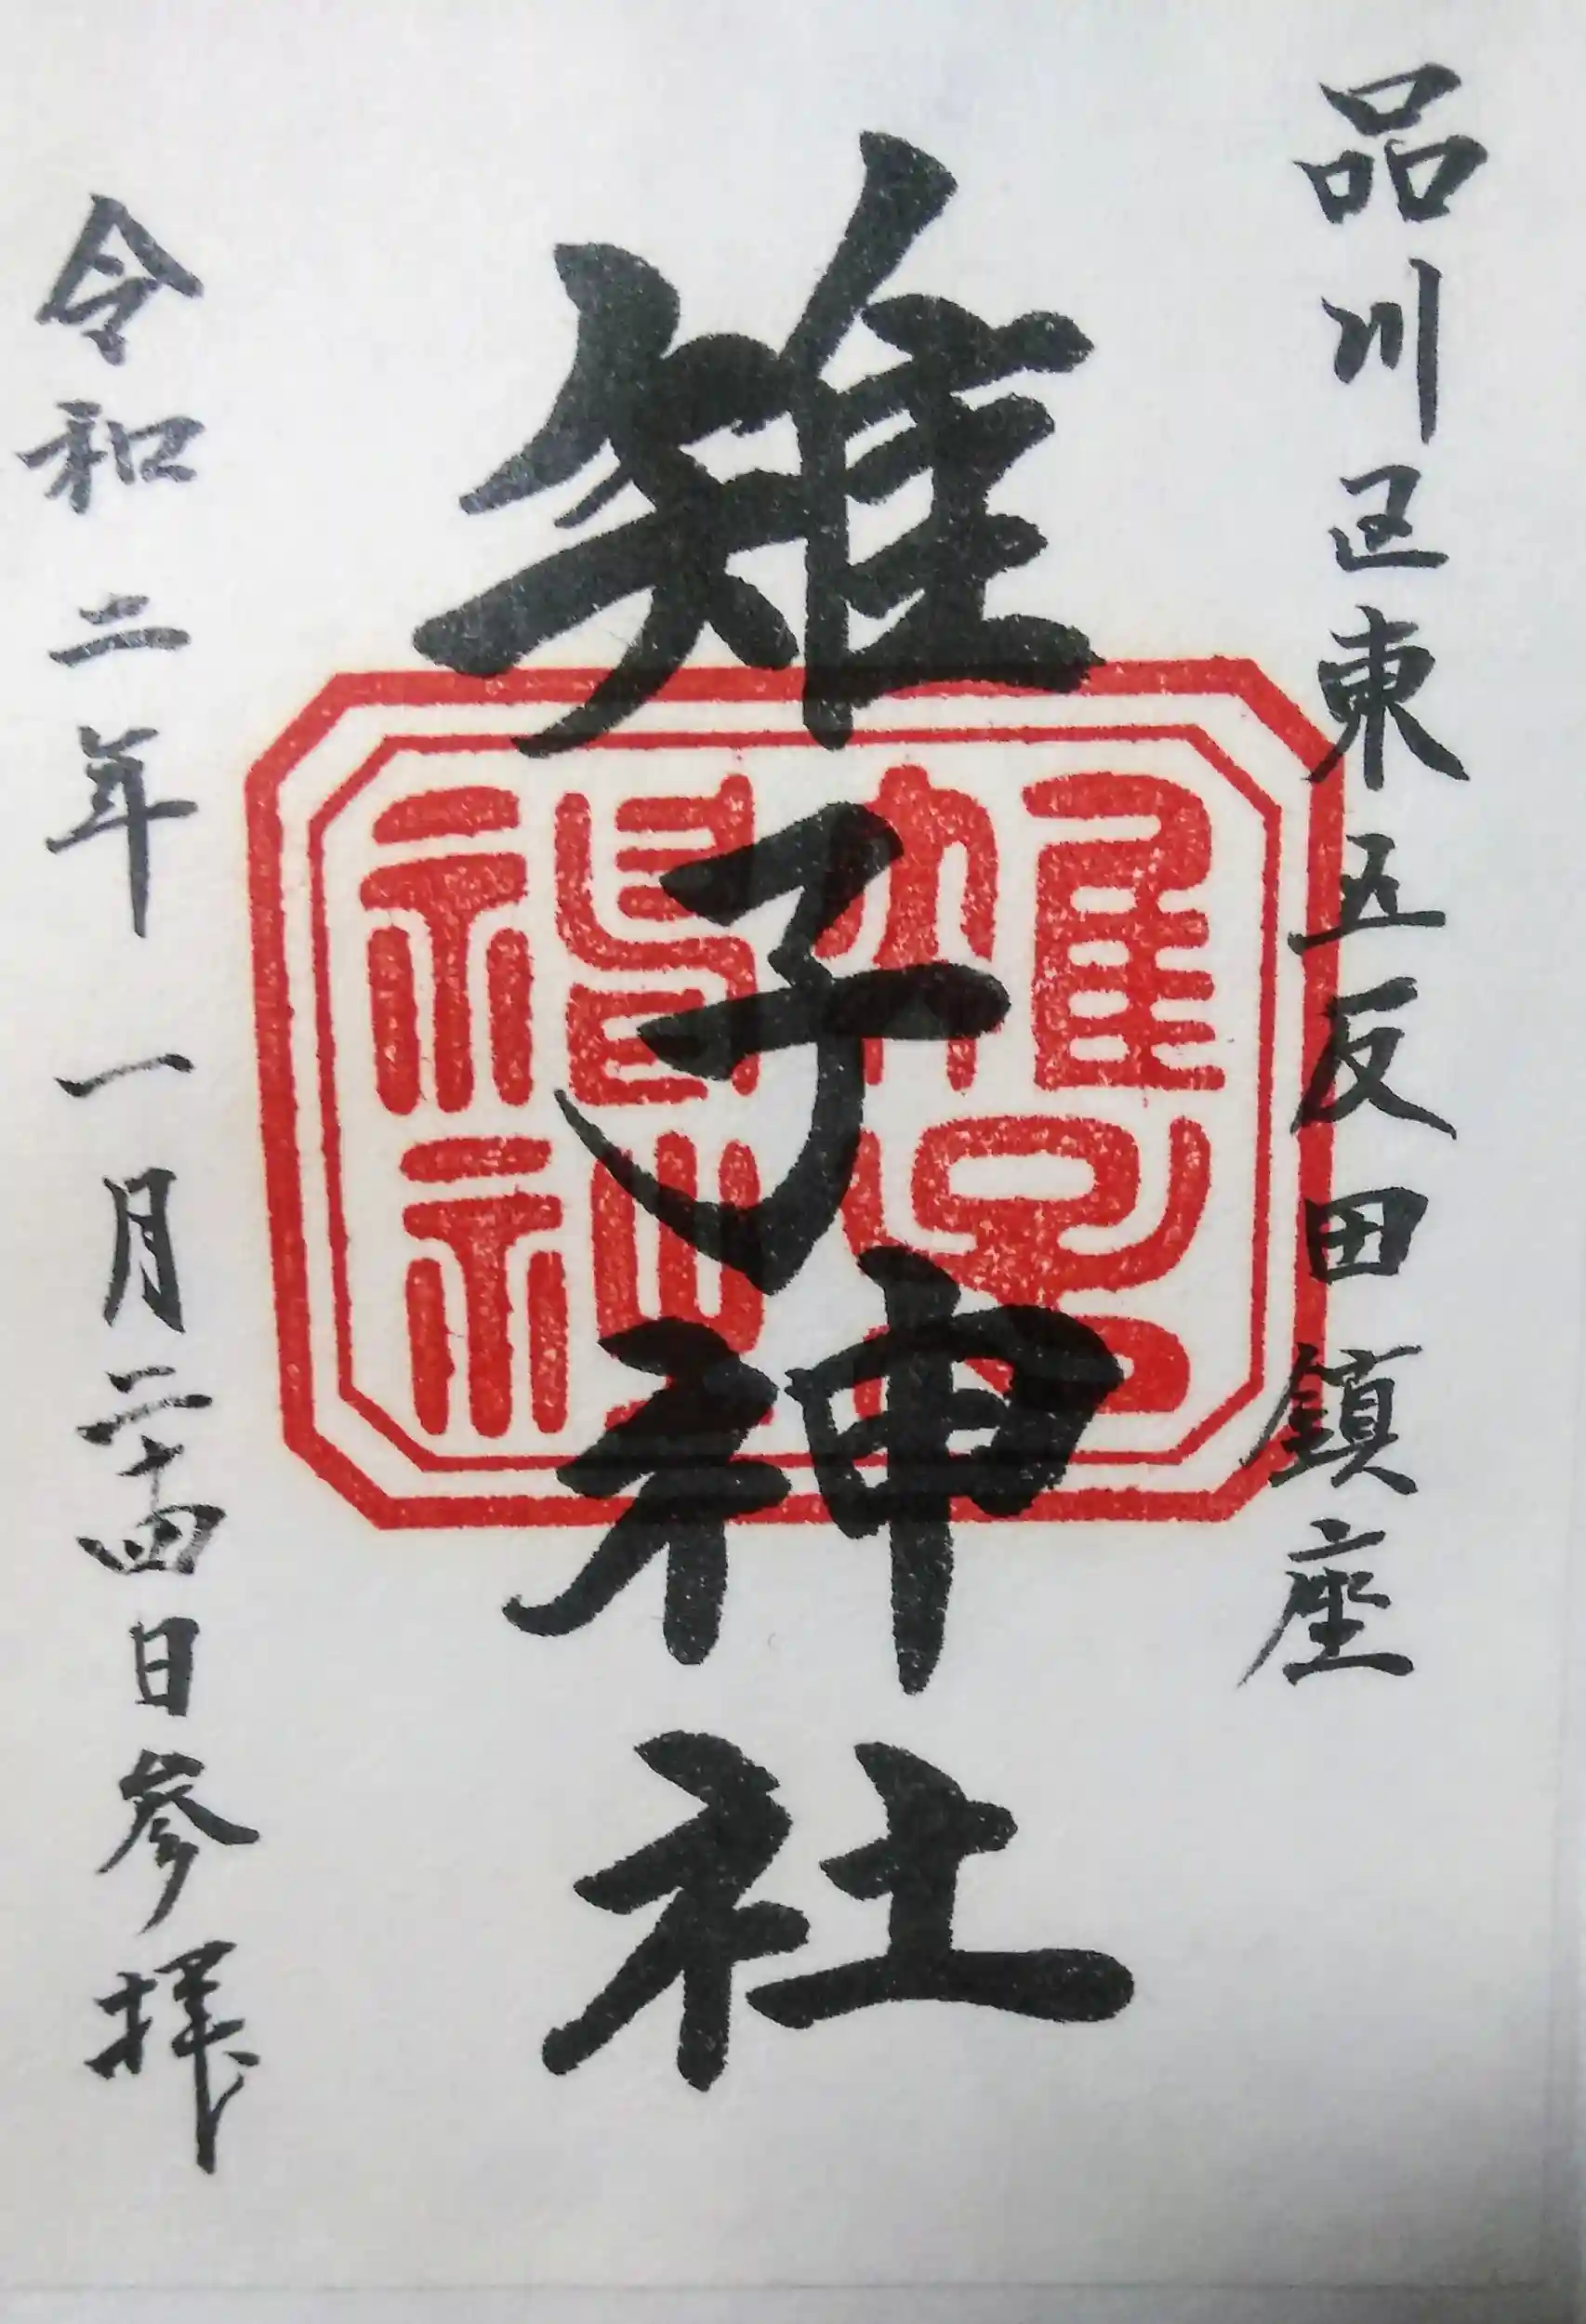 品川区東五反田鎮座
雉子神社
令和二年一月二十四日参拝